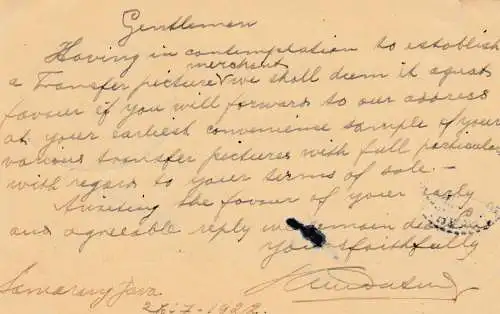 Gentlemen
Having in contemplation to establish
merchant
a Transfer picture we shall deem it a great
favour if you will forward to our address
at your earliest convenience sample of your
various transfer pictures with full particular
with regard to your terms of sale.
Awaiting the favour of your early
and agreeable reply we remain
yours faithfully
Samarang Java